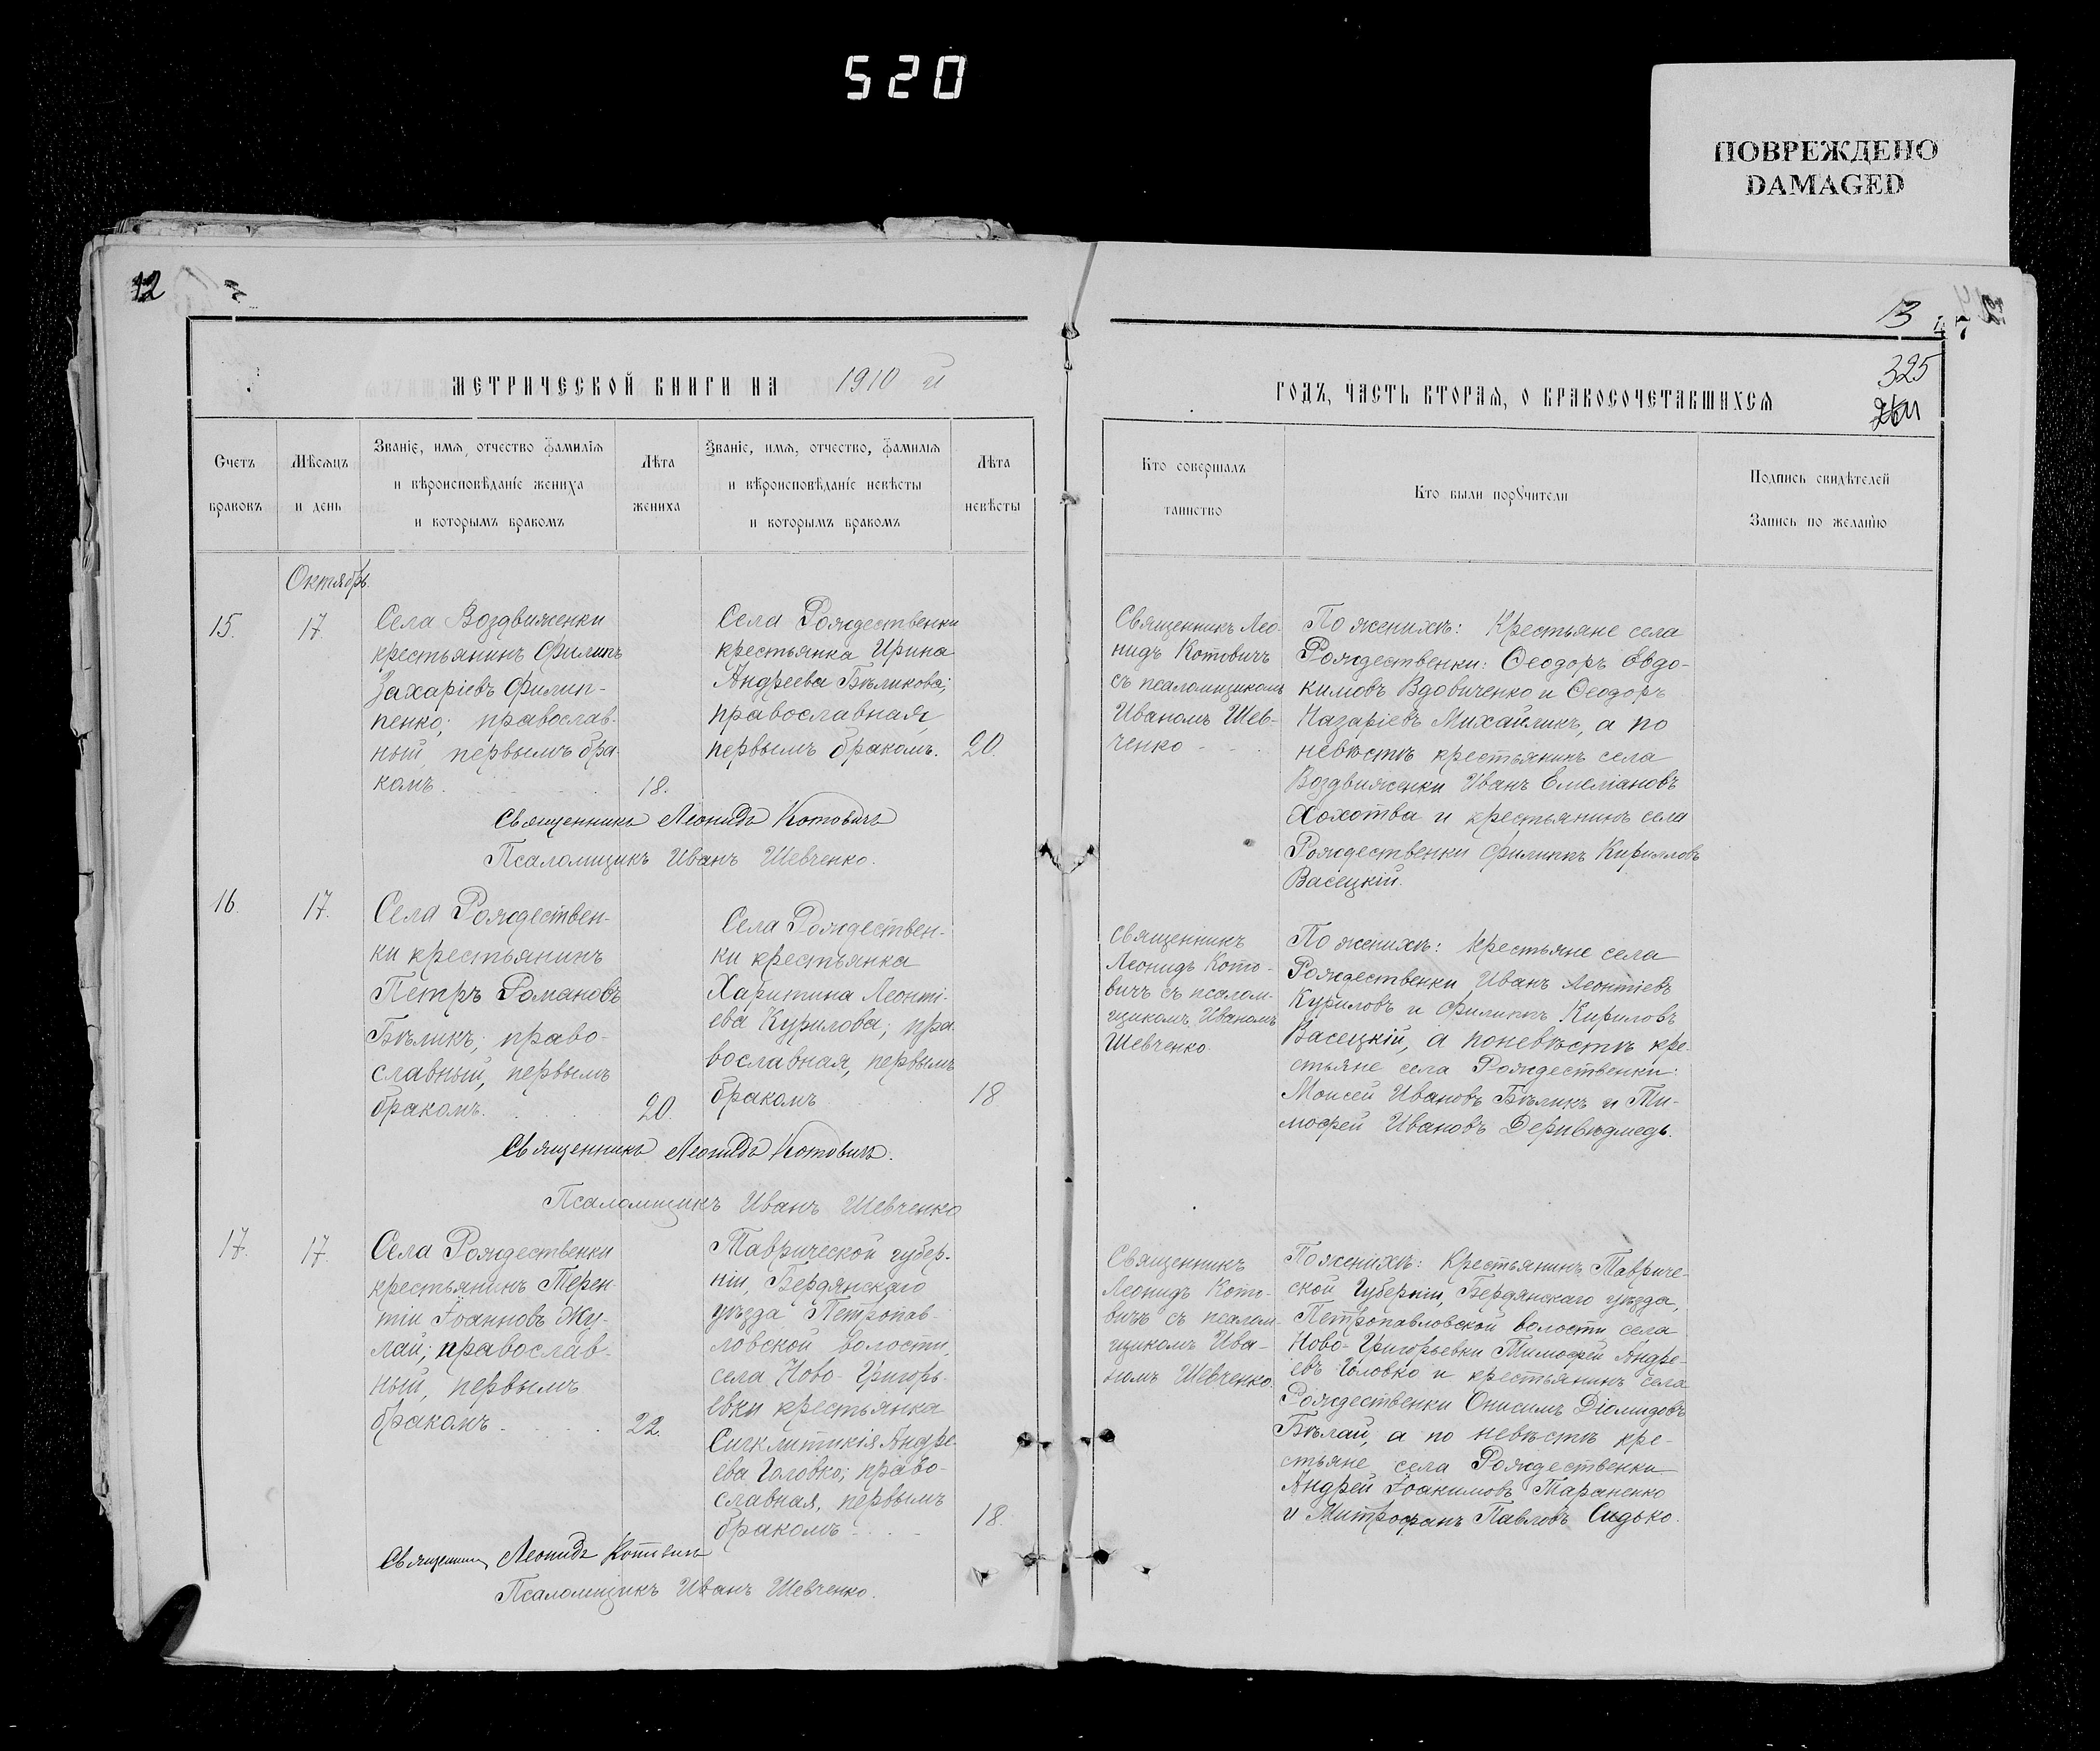 520
ПОВРЕЖДЕНО
DAMAGED
12
13
47
325
МЕТРИЧЕСКОЙ КНИГИ НА 1910 й
ГОДЪ, ЧАСТЬ ВТОРАЯ, О БРАКОСОЧЕТАВШИХСЯ
Счетъ
браковъ
Мѣсяцъ
и день
Званіе, имя, отчество фамилія
и вѣроисповѣданіе жениха
и которымъ бракомъ
Лѣта
жениха
Званіе, имя, отчество, фамилія
и вѣроисповѣданіе невѣсты
и которымъ бракомъ
Лѣта
невѣсты
Кто совершалъ
таинство
Кто были поручители
Подпись свидѣтелей
Запись по желанію
Октябрь
15.
17.
Села Воздвиженки
крестьянинъ Филипъ
Захаріевъ Филип-
пенко; православ-
ный, первымъ бра-
комъ.
18.
Села Рождественки
крестьянка Ирина
Андреева Бѣликова;
православная,
первымъ бракомъ.
20.
Священникъ Лео-
нидъ Котовичъ
съ псаломщикомъ
Иваномъ Шев-
ченко
По женихѣ: Крестьяне села
Рождественки: Ѳеодоръ Евдо-
кимовъ Вдовиченко и Ѳеодоръ
Назаріевъ Михайликъ, а по
невѣстѣ крестьянинъ села
Воздвиженки Иванъ Емеліановъ
Хохотва и крестьянинъ села
Рождественки Филиппъ Кирилловъ
Васецкій.
Священникъ Леонидъ Котовичъ
Псаломщикъ Иванъ Шевченко.
16.
17.
Села Рождествен-
ки крестьянинъ
Петръ Романовъ
Бѣликъ; право-
славный, первымъ
бракомъ.
20.
Села Рождествен-
ки крестьянка
Харитина Леонті-
ева Курилова; пра-
вославная, первымъ
бракомъ
18
Священникъ
Леонидъ Кото-
вичъ съ псалом-
щикомъ Иваномъ
Шевченко.
По женихѣ: крестьяне села
Рождественки Иванъ Леонтіевъ
Куриловъ и Филиппъ Кириловъ
Васецкій, а по невѣстѣ кре-
стьяне села Рождественки:
Моисей Ивановъ Бѣликъ и Ти-
мофей Ивановъ Деривѣдмедь.
Священникъ Леонидъ Котовичъ.
Псаломщикъ Иванъ Шевченко
17.
17.
Села Рождественки
крестьянинъ Терен-
тій Іоанновъ Жу-
лай; православ-
ный, первымъ
бракомъ
22.
Таврической губер-
ніи, Бердянскаго
уѣзда Петропав-
ловской волости,
села Ново-Григорь-
евки крестьянка
Сигклитикія Андре-
ева Головко; право-
славная, первымъ
бракомъ
18.
Священникъ
Леонидъ Кото-
вичъ съ псалом-
щикомъ Ива-
номъ Шевченко.
По женихѣ: Крестьянинъ Тавриче-
ской Губерніи, Бердянскаго уѣзда,
Петропавловской волости села
Ново-Григорьевки Тимофей Андре-
евъ Головко и крестьянинъ села
Рождественки Онисимъ Діомидовъ
Бѣлай, а по невѣстѣ кре-
стьяне села Рождественки
Андрей Іоакимовъ Тараненко
и Митрофанъ Павловъ Сидько.
Священникъ Леонидъ Котовичъ
Псаломщикъ Иванъ Шевченко.